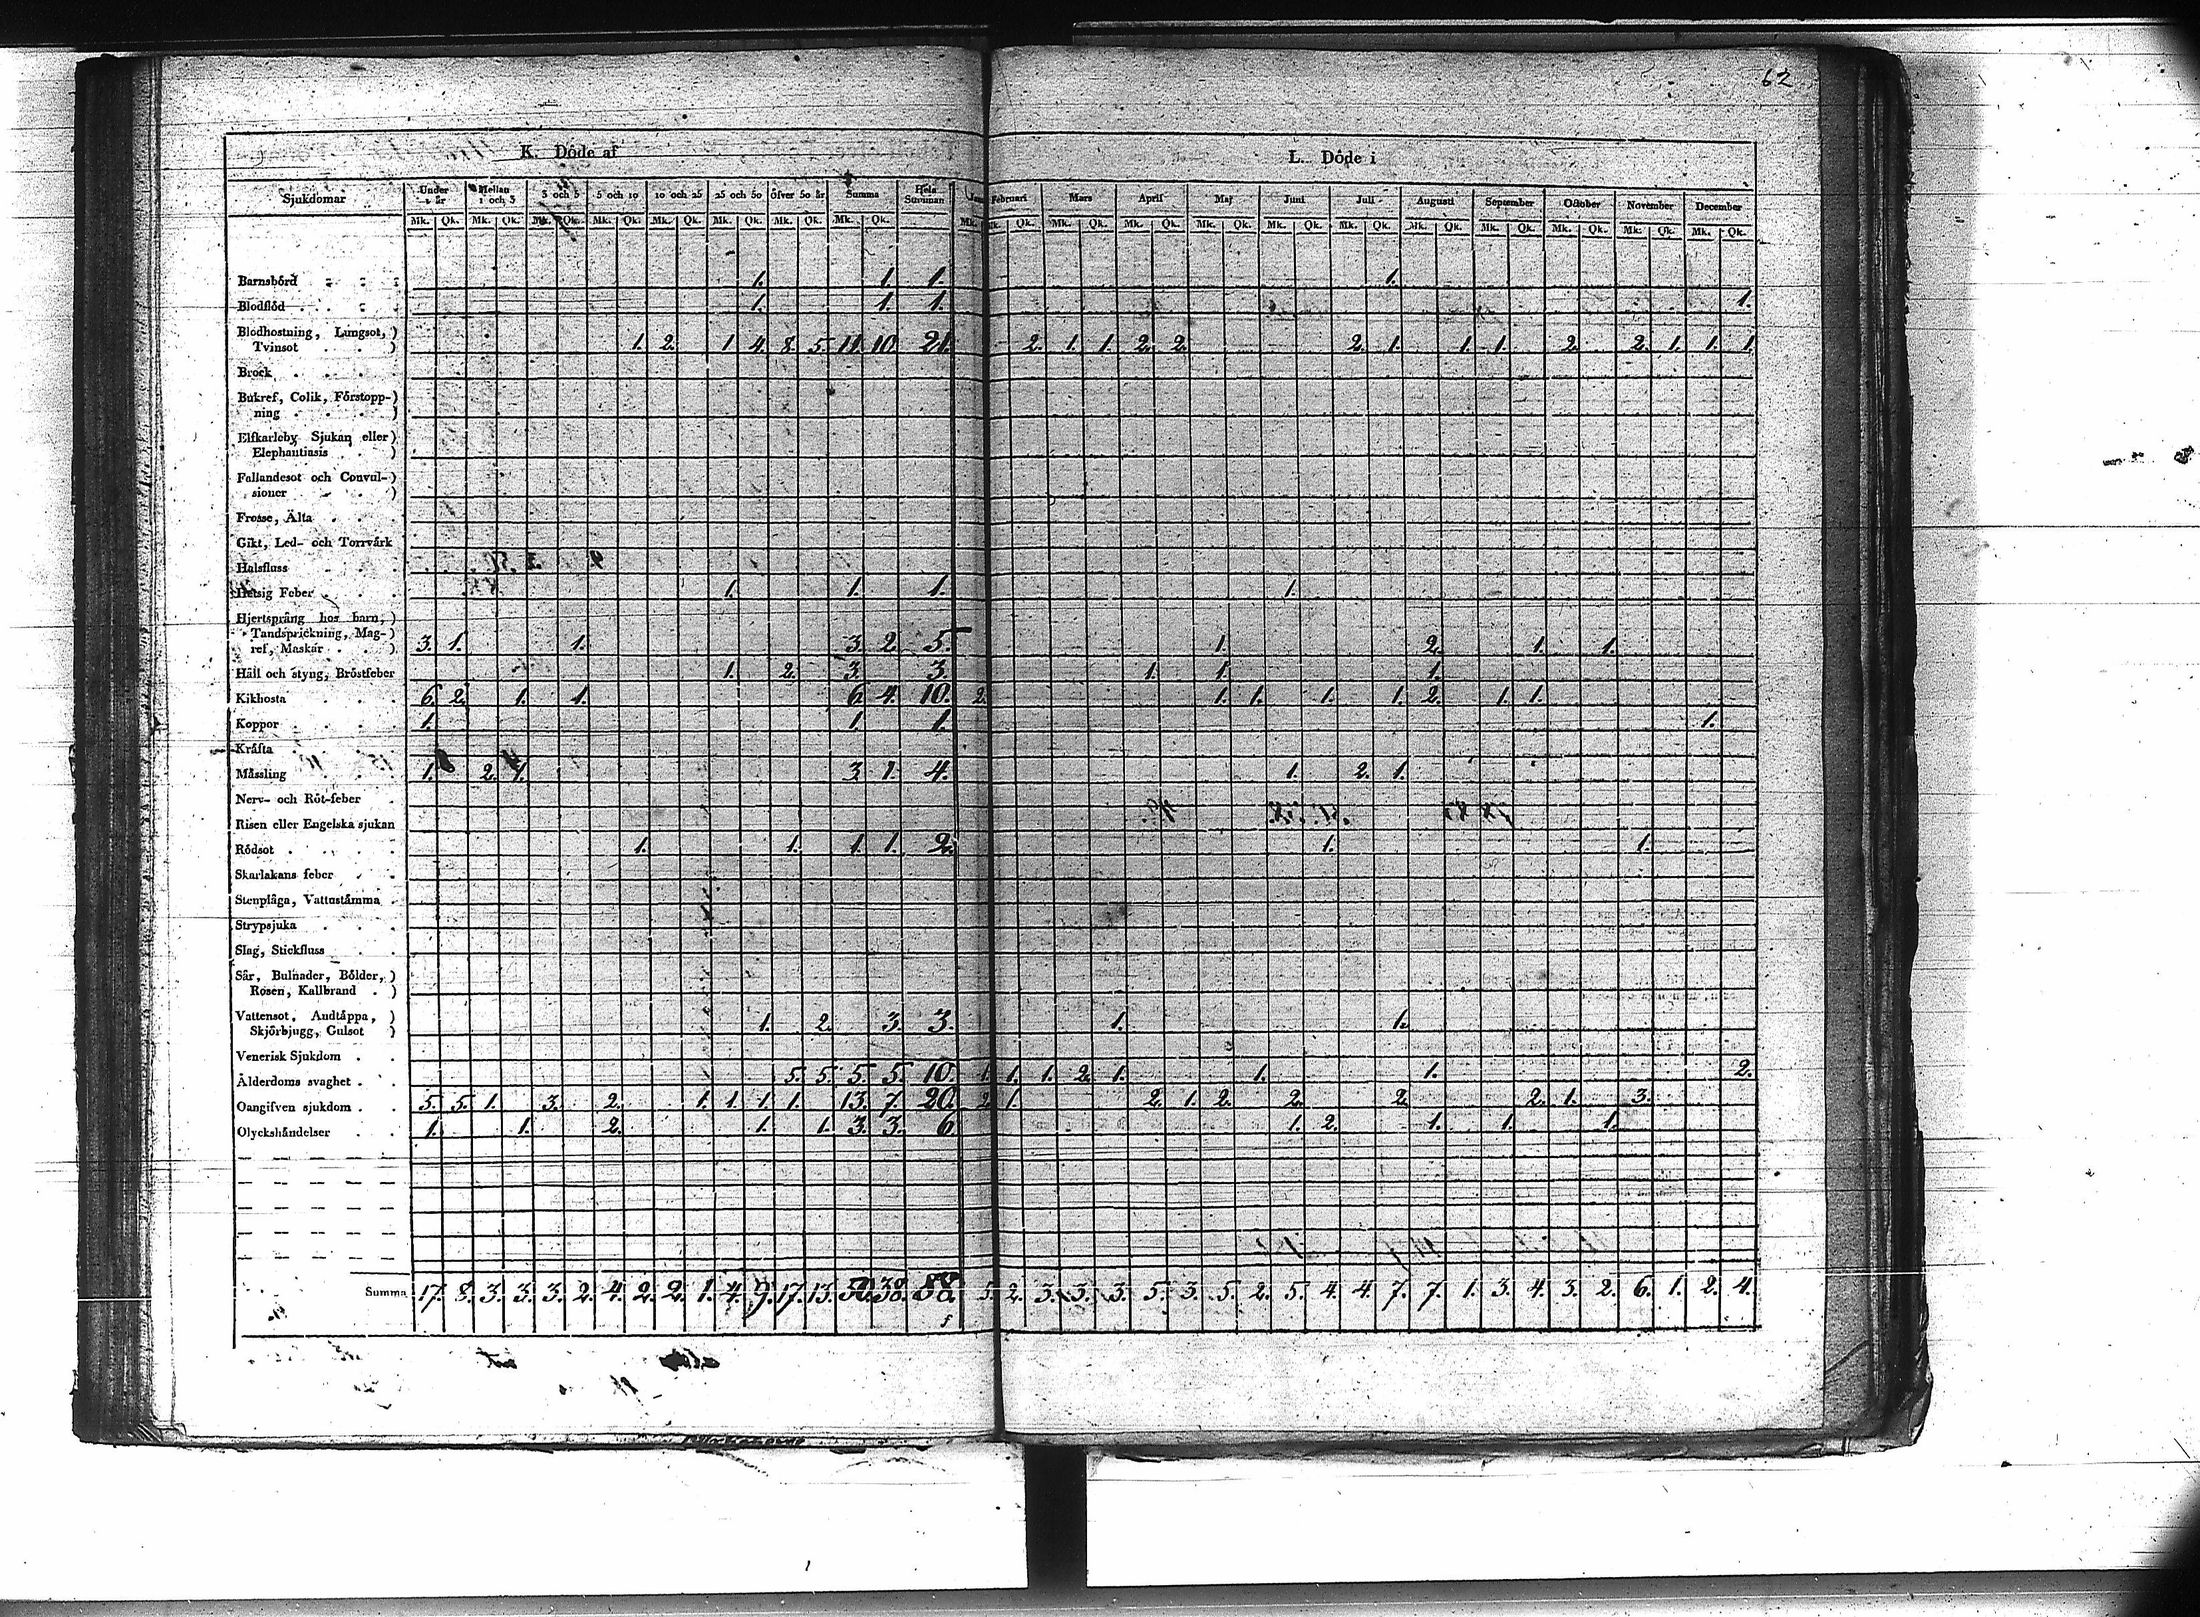 62
K. Döde af L. Döde i
Sjukdomar Under 1 år Mellan 1 och 3 3 och 5 5 och 10 10 och 25 25 och 50 öfver 50 år Summa Hela Summan Februari Mars April Maj Juni Juli Augusti September October November December
Mk. Qk. Mk. Qk. Mk. Qk. Mk. Qk. Mk. Qk. Mk. Qk. Mk. Qk. Mk. Qk. Mk. Mk. Qk. Mk. Qk. Mk. Qk. Mk. Qk. Mk. Qk. Mk. Qk. Mk. Qk. Mk. Qk. Mk. Qk. Mk. Qk. Mk. Qk.
Barnsbörd 1. 1. 1. 1.
Blodflöd 1. 1. 1. 1.
Blodhostning, Lungsot,)
Tvinsot ) 1. 2. 1 4. 8. 5. 11. 10. 21. 2. 1. 1. 2. 2. 2. 1. 1. 1. 2. 2. 1. 1. 1.
Brock
Bukref, Colik, Förstopp-)
ning )
Elfkarleby Sjukan eller)
Elephantiasis )
Fallandesot och Convul-)
sioner )
Frosse, Älta
Gikt, Led- och Torrvärk
Halsfluss
Hetsig Feber 1. 1. 1. 1.
Hjertsprång hos barn,)
Tandsprickning, Mag-)
ref, Maskar ) 3. 1. 1. 3. 2. 5. 1. 2. 1. 1.
Håll och styng, Bröstfeber 1. 2. 3. 3. 1. 1. 1.
Kikhosta 6. 2. 1. 1. 6. 4. 10. 2. 1. 1. 1. 1. 2. 1. 1.
Koppor 1. 1. 1. 1.
Kräfta
Mässling 1. 2. 1. 3. 1. 4. 1. 2. 1.
Nerv- och Röt-feber
Risen eller Engelska sjukan
Rödsot 1. 1. 1. 1. 2. 1. 1.
Skarlakans feber
Stenplåga, Vattustämma
Strypsjuka
Slag, Stickfluss
Sår, Bulnader, Bölder,)
Rosen, Kallbrand )
Vattensot, Andtäppa, )
Skjörbjugg, Gulsot ) 1. 2. 3. 3. 1. 1.
Venerisk Sjukdom
Ålderdoms svaghet 5. 5. 5. 5. 10. 1. 1. 1. 2. 1. 1. 1. 2.
Oangifven sjukdom 5. 5. 1. 3. 2. 1. 1. 1. 1. 13. 7. 20. 2. 1. 2. 1. 2. 2. 2. 2. 1. 3.
Olyckshändelser 1. 1. 2. 1. 1. 3. 3. 6. 1. 2. 1. 1. 1.
Summa 17. 8. 3. 3. 3. 2. 4. 2. 2. 1. 4. 9. 17. 13. 50. 38. 88. 5. 2. 3. 3. 3. 5. 3. 5. 2. 5. 4. 4. 7. 7. 1. 3. 4. 3. 2. 6. 1. 2. 4.